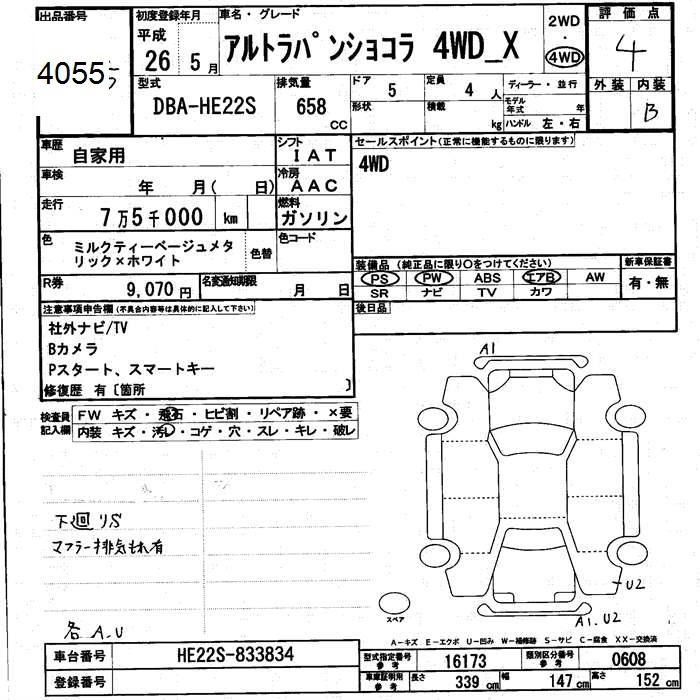 出品番号
4055
初度登録年月
平成
26 5月
車名・グレード
アルトラパンショコラ 4WD_X
2WD
・
4WD
評価点
4
外装 内装
B
型式
DBA-HE22S
排気量
658
CC
ドア 5
定員 4人
形状
積載 kg
ディーラー・並行
モデル年式 年
ハンドル 左・右
車歴
自家用
シフト
IAT
車検
年 月( 日)
冷房
AAC
走行
7万5千000 km
燃料
ガソリン
色
ミルクティーベージュメタ
リック×ホワイト
色替
色コード
R券
9,070円
名変通知期限
月 日
セールスポイント(正常に機能するものに限ります)
4WD
装備品 (純正品に限り○をつけてください)
PS PW ABS エアB AW
SR ナビ TV カワ
新車保証書
有・無
後日品
注意事項申告欄(不具合内容等は具体的に記入して下さい)
社外ナビ/TV
Bカメラ
Pスタート、スマートキー
修復歴 有〔箇所 〕
検査員
記入欄
FW キズ・飛石・ヒビ割・リペア跡・×要
内装 キズ・汚レ・コゲ・穴・スレ・キレ・破レ
下回りS
マフラー排気もれ有
各A.U
A1
U2
A1.U2
スペア
A-キズ E-エクボ U-凹み W-補修跡 S-サビ C-腐食 XX-交換済
車台番号
HE22S-833834
登録番号
型式指定番号
参考
16173
類別区分番号
参考
0608
車庫証明用
参考
長さ 339cm
幅 147cm
高さ 152cm